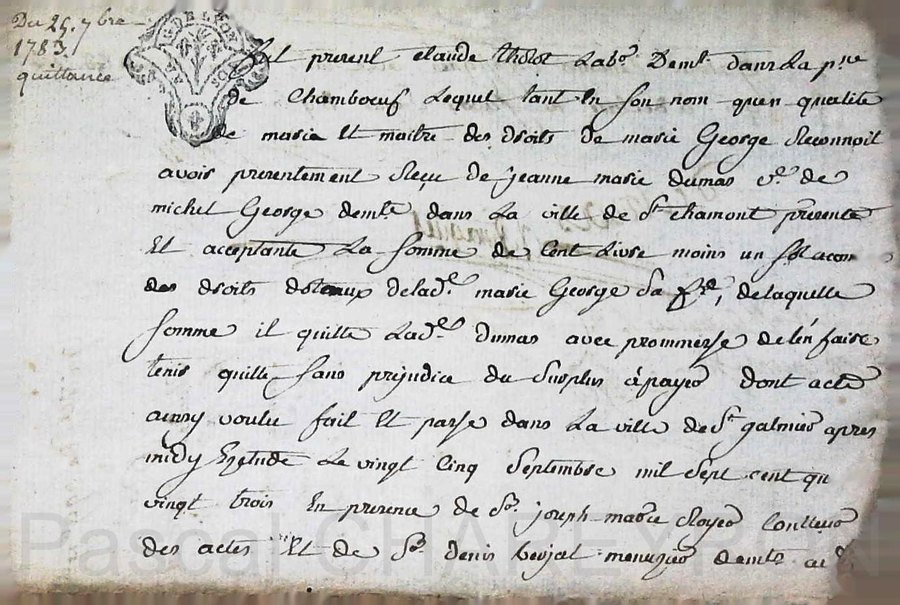 Du 25. 7bre
1783.
quittance
GEN DE LYON
fut present claude tholot Labr. Demt. dans La psse
de Chambœuf Lequel tant En son nom quen qualité
de marie Et maitre des droits de marie George Reconnoit
avoir presentement Reçu de jeanne marie dumas ve. de
michel George demte dans La ville de St. chamont presente
Et acceptante La somme de Cent Livre moins un sol acom
des droits doteaux delade. marie George Sa fe., delaquelle
somme il quitte Lade. dumas avec prommesse de len faire
tenir quitte sans prejudice du surplus à payer dont acte
ainsy voulu fait Et passe dans La ville de St. galmier apres
midy Etude Le vingt Cinq Septembre mil Sept cent qu
vingt trois En presence de Sr. joseph marie Royer Conttrolleur
des actes Et de Sr. denis menuzier demts au
Pascal CHAREYRON